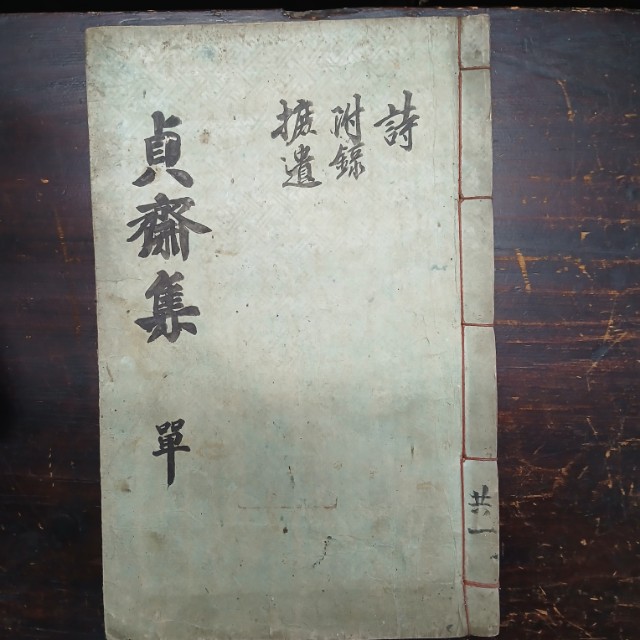 詩
附錄
摭遺
貞齋集 單
共一